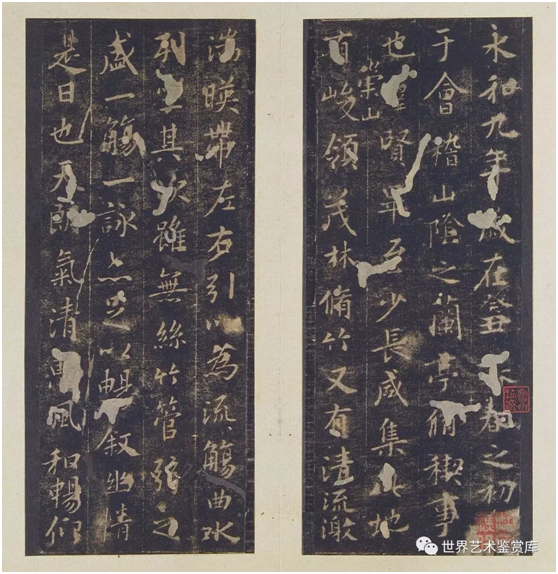 永和九年歲在癸丑暮春之初
于會稽山陰之蘭亭脩稧事
也群賢畢至少長咸集此地
有崇山峻領茂林脩竹又有清流激
湍暎帶左右引以為流觴曲水
列坐其次雖無絲竹管弦之
盛一觴一詠亦足以暢敘幽情
是日也天朗氣清惠風和暢仰
世界艺术鉴赏库